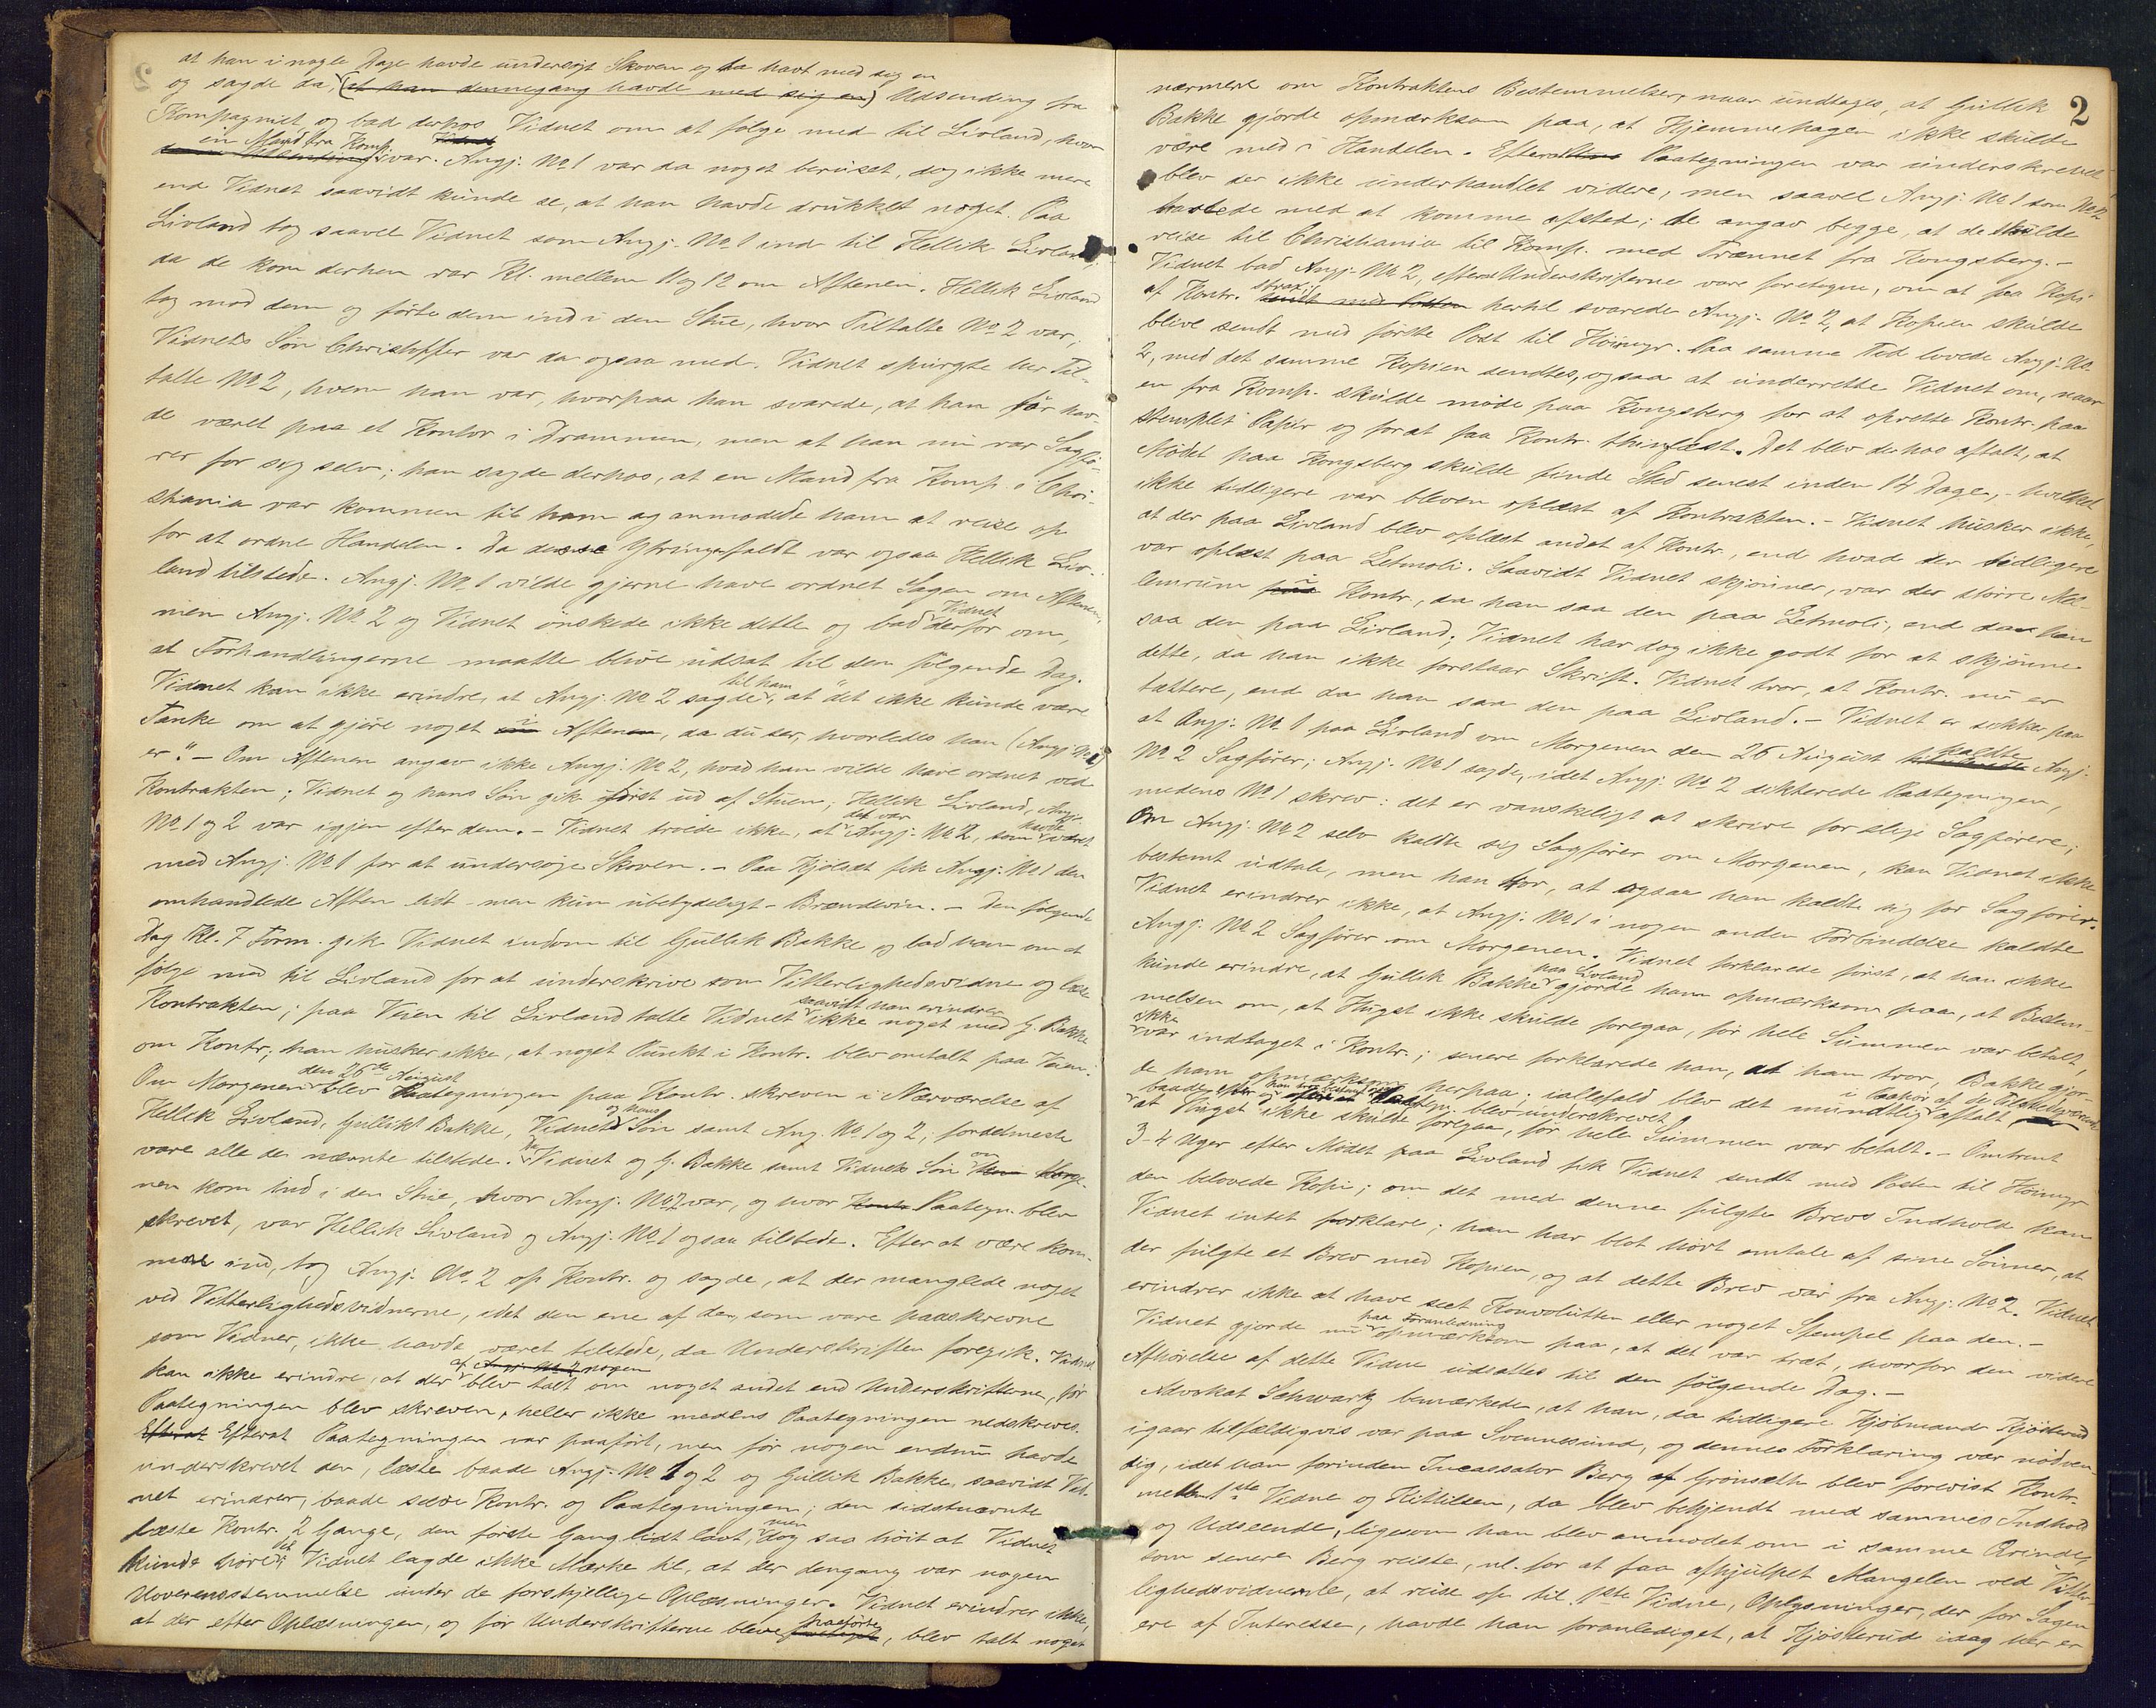 at han i nogle Dage havde undersøgt Skoven og da havt med sig en
og sagde da, (at han dennegang havde med sig en) Udsending fra
Kompagniet og bad derhos Vidnet om at følge med til Livland, hvor
en Mand fra Komp. Vidnet
denne Udsending var. Angj. No 1 var da noget beruset, dog ikke mere
end Vidnet saavidt kunde se, at han havde drukket noget. Paa
Livland tog saavel Vidnet som Angj. No. 1 ind til Hellik Livland;
da de kom derhen var Kl. mellem 11 og 12 om Aftenen. Hellik Livland
tog mod dem og førte dem ind i den Stue, hvor Tiltalte No 2 var;
Vidnets Søn Christoffer var da ogsaa med. Vidnet spurgte her Til-
talte No 2, hvem han var, hvorpaa han svarede, at han før hav-
de været paa et Kontor i Drammen, men at han nu var Sagfø-
rer for sig selv; han sagde derhos, at en Mand fra Komp. i Chri-
stiania var kommen til ham og anmodede ham at reise op
for at ordne Handelen. Da denne Ytring faldt var ogsaa Hellik Liv-
land tilstede. Angj. No. 1 vilde gjerne have ordnet Sagen om Aftenen,
men Angj. No. 2 og Vidnet ønskede ikke dette og bad Vidnet derfor om,
at Forhandlingerne maatte blive udsat til den følgende Dag.
Vidnet kan ikke erindre, at Angj. No 2 sagde til ham, at "det ikke kunde være
Tanke om at gjøre noget i Aften, da du ser, hvorledes han (Angj. No 1)
er". – Om Aftenen angav ikke Angj. No 2, hvad han vilde have ordnet ved
Kontrakten; Vidnet og hans Søn gik først ud af Stuen; Hellik Livland, Angj.
No. 1 og 2 var igjen efter dem. – Vidnet troede ikke, at det var Angj. No 2, som havde været
med Angj. No 1 for at undersøge Skoven. – Paa Kjølset fik Angj. No 1 den
omhandlede Aften lidt – men kun ubetydeligt – Brændevin. – Den følgende
Dag Kl. 7 Form. gik Vidnet indom til Gullik Bakke og bad ham om at
følge med til Livland for at underskrive som Vitterlighedsvidne og læse
Kontrakten; paa Veien til Livland talte Vidnet saavidt han erindrer ikke noget med G. Bakke
om Kontr.; han husker ikke, at noget Punkt i Kontr. blev omtalt paa Veien.
Om Morgenen den 26de August blev Paategningen paa Kontr. skreven i Nærværelse af
Hellik Livland, Gullik Bakke, Vidnet og hans Søn samt Ang. No 1 og 2; fordetmeste
vare alle de nævnte tilstede. Da Vidnet og G. Bakke samt Vidnets Søn om Morge-
nen kom ind i den Stue, hvor Angj. No 2 var, og hvor Kontr. Paategn. blev
skrevet, var Hellik Livland og Angj. No. 1 ogsaa tilstede. Efter at være kom-
mne ind, tog Angj. No. 2 op Kontr. og sagde, at der manglede noget
ved Vitterlighedsvidnerne, idet den ene af dem, som vare paaskrevne
som Vidner, ikke havde været tilstede, da Underskriften foregik. Vidnet
kan ikke erindre, at der af Angj. No 2 nogen blev talt om noget andet end Underskrifterne, før
Paategningen blev skreven, heller ikke medens Paategningen nedskreves.
Efterat Efterat Paategningen var paaført, men før nogen endnu havde
underskrevet den, læste baade Angj. No. 1 og 2 og Gullik Bakke, saavidt Vid-
net erindrer, baade selve Kontr. og Paategningen; den sidstnævnte
læste Kontr. 2 Gange, den første Gang lidt lavt, men dog saa høit at Vidnet
kunde høre det; Vidnet lagde ikke Mærke til, at der dengang var nogen
Uoverensstemmelse under de forskjellige Oplæsninger. Vidnet erindrer ikke,
at der efter Oplæsningen, og før Underskrifterne bleve paaførte, blev talt noget
2
nærmere om Kontraktens Bestemmelser, naar undtages, at Gullik
Bakke gjorde opmærksom paa, at Hjemmehagen ikke skulde
være med i Handelen. Efterat Paategningen var underskrevet
blev der ikke underhandlet videre, men saavel Angj. No 1 som No 2
hastede med at komme afsted; de angav begge, at de skulde
reise til Christiania til Komp. med Trænnet fra Kongsberg. –
Vidnet bad Angj. No 2, efterat Underskrifterne vare foretagne, om at faa Kopi
af Kontr. strax; hertil svarede Angj. No. 2, at Kopien skulde
blive sendt med første Post til Høimyr. Paa samme Tid lovede Angj. No.
2, med det samme Kopien sendtes, ogsaa at underrette Vidnet om, naar
en fra Komp. skulde møde paa Kongsberg for at oprette Kontr. paa
stemplet Papir og for at faa Kontr. thinglæst. Det blev derhos aftalt, at
Mødet paa Kongsberg skulde finde Sted senest inden 14 Dage, – hvilket
ikke tidligere var bleven oplæst af Kontrakten. – Vidnet husker ikke,
at der paa Livland blev oplæst andet af Kontr., end hvad der tidligere
var oplæst paa Letmoli. Saavidt Vidnet skjønner, var der større Mel-
lemrum i Kontr., da han saa den paa Letmoli, end da han
saa den paa Livland; Vidnet har dog ikke godt for at skjønne
dette, da han ikke forstaar Skrift. Vidnet tror, at Kontr. nu er
tættere, end da han saa den paa Livland. – Vidnet er sikker paa
at Angj. No 1 paa Livland om Morgenen den 26 August kaldte Angj.
No 2 Sagfører; Angj. No 1 sagde, idet Angj. No 2 dikterede Paategningen,
medens No 1 skrev: det er vanskeligt at skrive for slige Sagførere;
Om Angj. No 2 selv kaldte sig Sagfører om Morgenen, kan Vidnet ikke
bestemt udtale, men han tror, at ogsaa han kaldte sig for Sagfører.
Vidnet erindrer ikke, at Angj. No. 1 i nogen anden Forbindelse kaldte
Angj. No 2 Sagfører om Morgenen. Vidnet forklarede først, at han ikke
kunde erindre, at Gullik Bakke paa Livland gjorde ham opmærksom paa, at Bestem-
melsen om, at Hugst ikke skulde foregaa, før hele Summen var betalt,
ikke var indtaget i Kontr.; senere forklarede han, at han tror, Bakke gjor-
de ham opmærksom herpaa; iallefald blev det mundtlig aftalt,
at Hugst ikke skulde foregaa, før hele Summen var betalt. – Omtrent
3–4 Uger efter Mødet paa Livland fik Vidnet sendt med Posten til Høimyr
den belovede Kopi; om det med denne fulgte Brevs Indhold kan
Vidnet intet forklare; han har blot hørt omtale af sine Sønner, at
der fulgte et Brev med Kopien, og at dette Brev var fra Angj. No 2. Vidnet
erindrer ikke at have seet Konvolutten eller noget Stempel paa den. –
Vidnet gjorde nu paa Foranledning opmærksom paa, at det var træt, hvorfor den videre
Afhørelse af dette Vidne udsattes til den følgende Dag. –
Advokat Schwartz bemærkede, at han, da tidligere Kjøbmand Kjøsterud
igaar tilfældigvis var paa Svennesund, og dennes Forklaring var nødven-
dig, idet han forinden Incassator Berg af Grønsæth blev forevist Kontr.
mellem 1ste Vidne og Kittilsen, da blev bekjendt med sammes Indhold
og Udseende, ligesom han blev anmodet om i samme Ærinde,
som senere Berg reiste, nl. for at faa afhjulpet Mangelen ved Vitter-
lighedsvidnerne, at reise op til 1ste Vidne, Oplysninger, der for Sagen
ere af Interesse, havde han foranlediget, at Kjøsterud idag her er